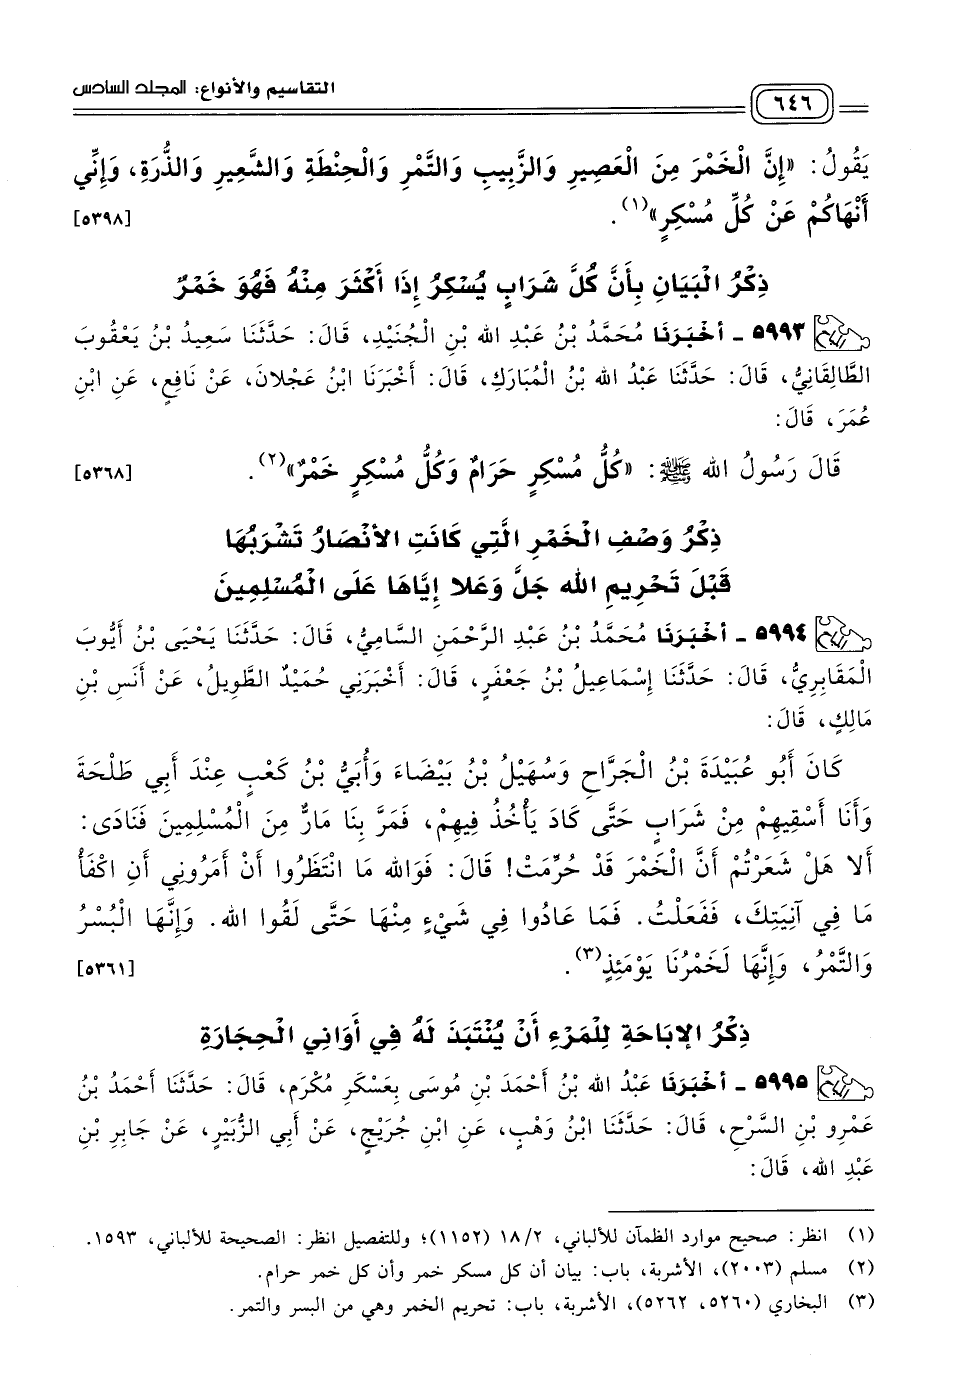 التقاسيم والأنواع: المجلد السادس
٦٤٦
يَقُولُ: «إِنَّ الْخَمْرَ مِنَ الْعَصِيرِ وَالزَّبِيبِ وَالتَّمْرِ وَالْحِنْطَةِ وَالشَّعِيرِ وَالذُّرَةِ، وَإِنِّي
أَنْهَاكُمْ عَنْ كُلِّ مُسْكِرٍ»(١). [٥٣٩٨]
ذِكْرُ الْبَيَانِ بِأَنَّ كُلَّ شَرَابٍ يُسْكِرُ إِذَا أَكْثَرَ مِنْهُ فَهُوَ خَمْرٌ
٥٩٩٣ - أخْبَرَنَا مُحَمَّدُ بْنُ عَبْدِ الله بْنِ الْجُنَيْدِ، قَالَ: حَدَّثَنَا سَعِيدُ بْنُ يَعْقُوبَ
الطَّالِقَانِيُّ، قَالَ: حَدَّثَنَا عَبْدُ الله بْنُ الْمُبَارَكِ، قَالَ: أَخْبَرَنَا ابْنُ عَجْلانَ، عَنْ نَافِعٍ، عَنِ ابْنِ
عُمَرَ، قَالَ:
قَالَ رَسُولُ الله ﷺ: «كُلُّ مُسْكِرٍ حَرَامٌ وَكُلُّ مُسْكِرٍ خَمْرٌ»(٢). [٥٣٦٨]
ذِكْرُ وَصْفِ الْخَمْرِ الَّتِي كَانَتِ الأنْصَارُ تَشْرَبُهَا
قَبْلَ تَحْرِيمِ الله جَلَّ وَعَلا إِيَّاهَا عَلَى الْمُسْلِمِينَ
٥٩٩٤ - أخْبَرَنَا مُحَمَّدُ بْنُ عَبْدِ الرَّحْمَنِ السَّامِيُّ، قَالَ: حَدَّثَنَا يَحْيَى بْنُ أَيُّوبَ
الْمَقَابِرِيُّ، قَالَ: حَدَّثَنَا إِسْمَاعِيلُ بْنُ جَعْفَرٍ، قَالَ: أَخْبَرَنِي حُمَيْدٌ الطَّوِيلُ، عَنْ أَنَسِ بْنِ
مَالِكٍ، قَالَ:
كَانَ أَبُو عُبَيْدَةَ بْنُ الْجَرَّاحِ وَسُهَيْلُ بْنُ بَيْضَاءَ وَأُبَيُّ بْنُ كَعْبٍ عِنْدَ أَبِي طَلْحَةَ
وَأَنَا أَسْقِيهِمْ مِنْ شَرَابٍ حَتَّى كَادَ يَأْخُذُ فِيهِمْ، فَمَرَّ بِنَا مَارٌّ مِنَ الْمُسْلِمِينَ فَنَادَى:
أَلا هَلْ شَعَرْتُمْ أَنَّ الْخَمْرَ قَدْ حُرِّمَتْ! قَالَ: فَوَالله مَا انْتَظَرُوا أَنْ أَمَرُونِي أَنِ اكْفَأْ
مَا فِي آنِيَتِكَ، فَفَعَلْتُ. فَمَا عَادُوا فِي شَيْءٍ مِنْهَا حَتَّى لَقُوا الله. وَإِنَّهَا الْبُسْرُ
وَالتَّمْرُ، وَإِنَّهَا لَخَمْرُنَا يَوْمَئِذٍ(٣). [٥٣٦١]
ذِكْرُ الإِبَاحَةِ لِلْمَرْءِ أَنْ يُنْتَبَذَ لَهُ فِي أَوَانِي الْحِجَارَةِ
٥٩٩٥ - أخْبَرَنَا عَبْدُ الله بْنُ أَحْمَدَ بْنِ مُوسَى بِعَسْكَرِ مُكْرَمٍ، قَالَ: حَدَّثَنَا أَحْمَدُ بْنُ
عَمْرِو بْنِ السَّرْحِ، قَالَ: حَدَّثَنَا ابْنُ وَهْبٍ، عَنِ ابْنِ جُرَيْجٍ، عَنْ أَبِي الزُّبَيْرِ، عَنْ جَابِرِ بْنِ
عَبْدِ الله، قَالَ:
(١) انظر: صحيح موارد الظمآن للألباني، ١٨/٢ (١١٥٢)؛ وللتفصيل انظر: الصحيحة للألباني، ١٥٩٣.
(٢) مسلم (٢٠٠٣)، الأشربة، باب: بيان أن كل مسكر خمر وأن كل خمر حرام.
(٣) البخاري (٥٢٦٠، ٥٢٦٢)، الأشربة، باب: تحريم الخمر وهي من البسر والتمر.